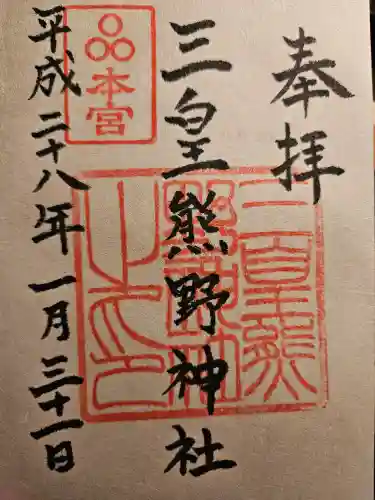 奉拝
三皇熊野神社
本宮
平成二十八年一月三十一日
三皇熊
野神社
之印